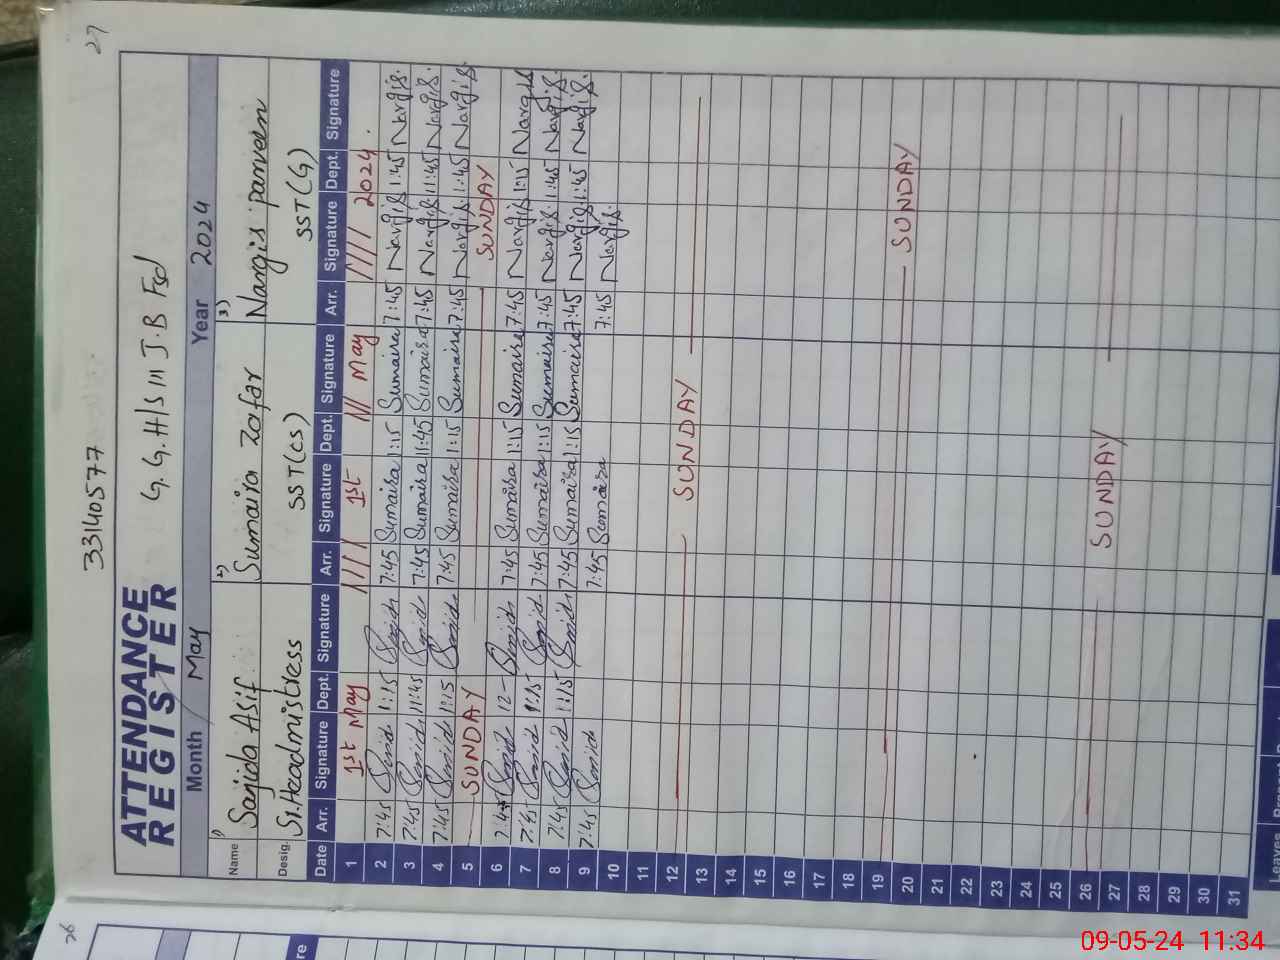 27
33140577
ATTENDANCE REGISTER
G. G. H/S 111 J.B Fsd
Month May Year 2024
Name 1) Sajida Asif 2) Sumaira Zafar 3) Nargis parveen
Desig. Sr. Headmistress SST(CS) SST(G)
Date Arr. Signature Dept. Signature Arr. Signature Dept. Signature Arr. Signature Dept. Signature
1 1st May //// 1st // May //// 2024.
2 7:45 1:15 7:45 Sumaira 1:15 Sumaira 7:45 Nargis 1:45 Nargis.
3 7:45 11:45 7:45 Sumaira 11:45 Sumaira 7:45 Nargis 11:45 Nargis.
4 7:45 1:15 7:45 Sumaira 1:15 Sumaira 7:45 Nargis. 1:45 Nargis.
5 SUNDAY SUNDAY
6 7:45 12- 7:45 Sumaira 1:15 Sumaira 7:45 Nargis 1:15 Nargis
7 7:45 1:15 7:45 Sumaira 1:15 Sumaira 7:45 Nargis 1:45 Nargis.
8 7:45 1:15 7:45 Sumaira 1:15 Sumaira 7:45 Nargis 1:45 Nargis.
9 7:45 7:45 Sumaira 7:45 Nargis.
10
11
12 SUNDAY
13
14
15
16
17
18
19 SUNDAY
20
21
22
23
24
25
26 SUNDAY
27
28
29
30
31
Leaves
26
re
09-05-24 11:34